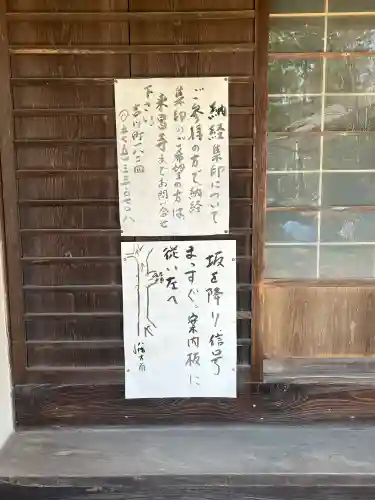 納経集印について
ご参様の方で納経
集印のご希望の方は、
来留寺までお問い合せ
下さい。
吉川町一八二四
坂を降り信号
まっすぐ。案内板に
従い左へ